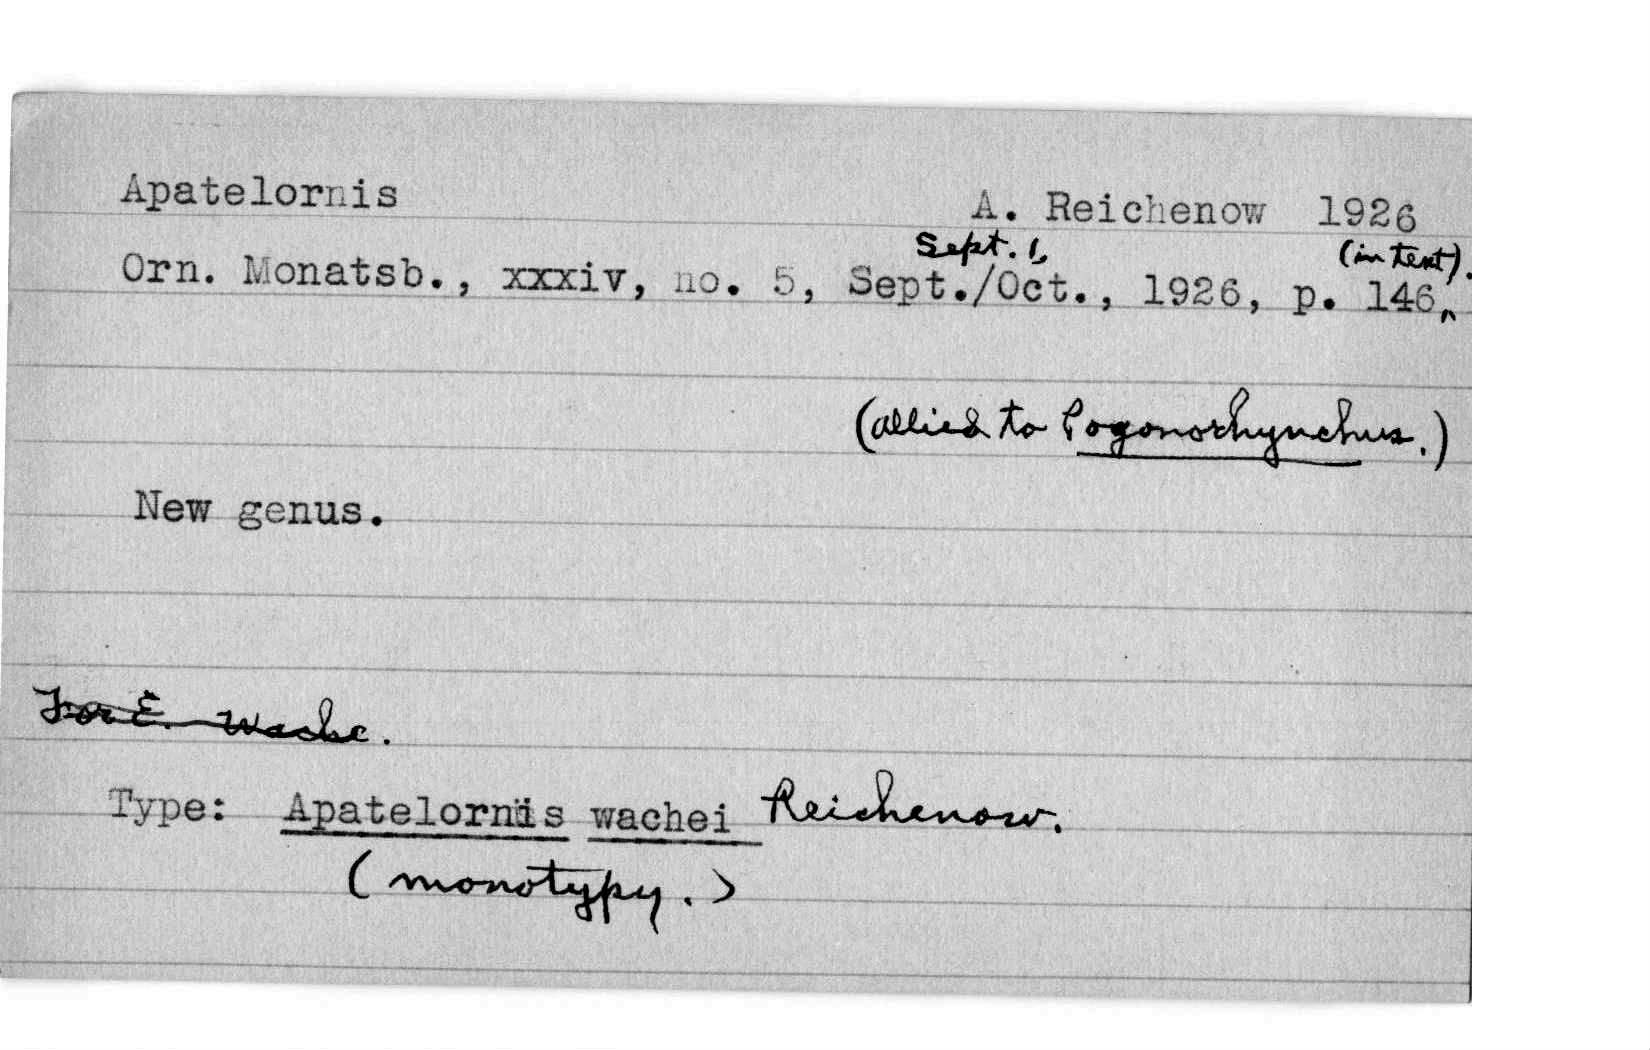 Apatelornis A. Reichenow 1926
Sept. 1, (in text).
Orn. Monatsb., xxxiv, no. 5, Sept./Oct., 1926, p. 146,
(allied to Pogonorhynchus.)
New genus.
For E. Wache.
Type: Apatelornis wachei Reichenow.
(monotypy.)